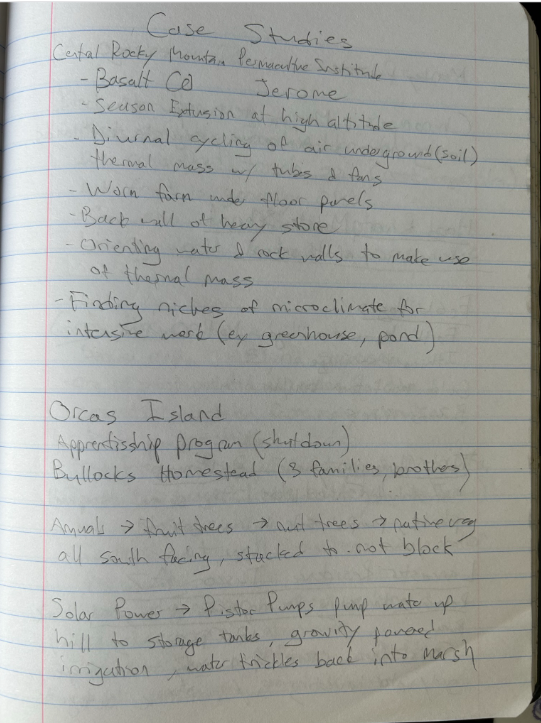 Case Studies
Cental Rocky Mountain Permaculture Institute
- Basalt CO Jerome
- Season Extension at high altitude
- Diurnal cycling of air underground (soil)
thermal mass w/ tubes & fans
- Worm farm under floor panels
- Back wall of heavy stone
- Orienting water & rock walls to make use
of thermal mass
- Finding niches of microclimate for
intensive work (ex greenhouse, pond)
Orcas Island
Apprentisship program (shutdown)
Bullocks Homestead (3 families, brothes)
Annuals → fruit trees → nut trees → native veg
all south facing, stacked to not block
Solar Power → Piston Pumps pump water up
hill to storage tanks, gravity powered
irrigation, water trickles back into marsh